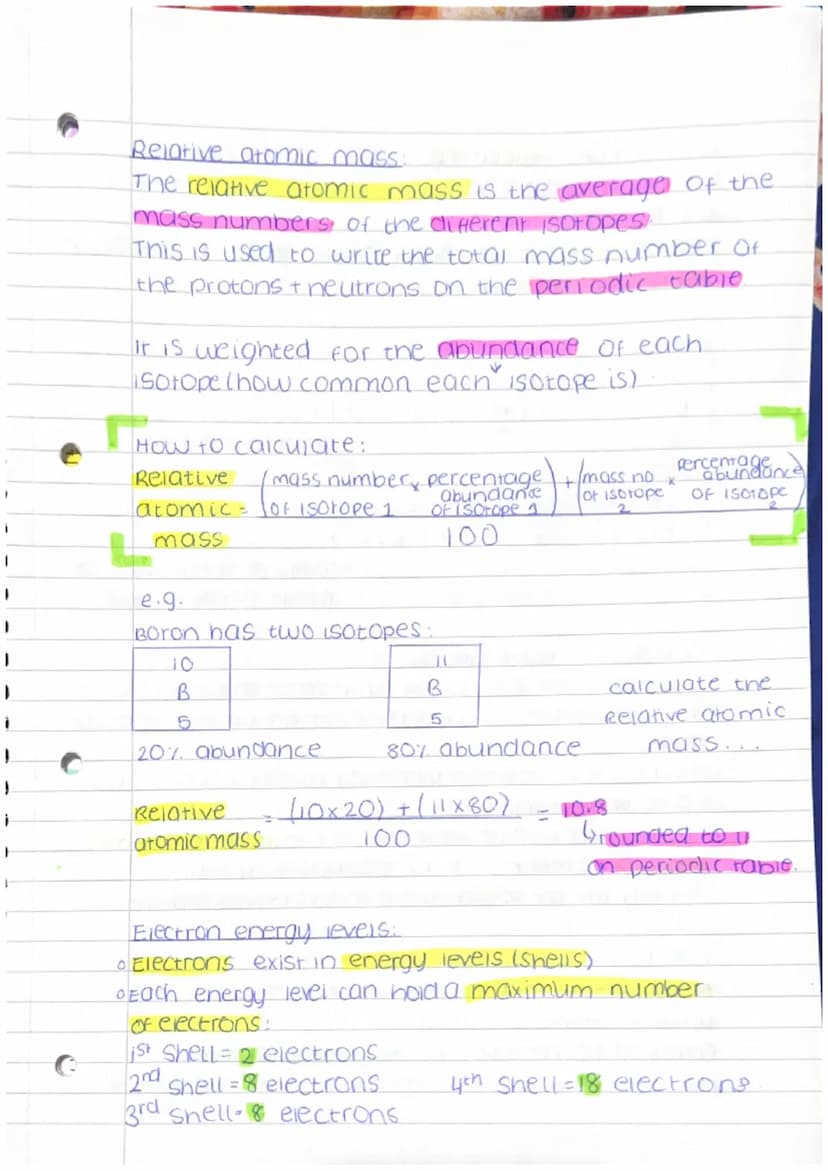 Relative atomic mass:
The relative atomic mass is the average of the
mass numbers of the different isotopes
This is used to write the total mass number of
the protons + neutrons on the periodic table
It is weighted for the abundance of each
isotope (how common each isotope is).
How to calculate:
Relative atomic mass = (mass number of isotope 1 × percentage abundance of isotope 1) + (mass no of isotope 2 × percentage abundance of isotope 2)
100
e.g.
Boron has two isotopes:
10
B
5
11
B
5
calculate the
relative atomic
mass...
20% abundance
80% abundance
Relative atomic mass = (10×20) + (11×80) = 10.8
100
↳ rounded to 11
on periodic table.
Electron energy levels:
Electrons exist in energy levels (shells)
Each energy level can hold a maximum number
of electrons:
1st shell = 2 electrons
2nd shell = 8 electrons
4th shell = 18 electrons
3rd shell = 8 electrons